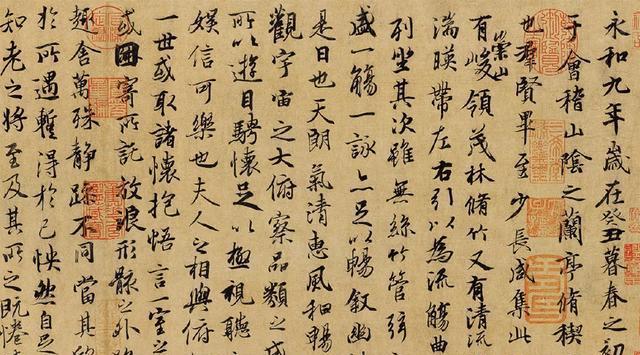 永和九年歲在癸丑暮春之初
于會稽山陰之蘭亭脩稧
也群賢畢至少長咸集此
有崇山峻領茂林脩竹又有清流
湍暎帶左右引以為流觴曲
列坐其次雖無絲竹管弦
盛一觴一詠亦足以暢敘幽
是日也天朗氣清惠風和暢
觀宇宙之大俯察品類之
所以遊目騁懷足以極視聽
娛信可樂也夫人之相與俯
一世或取諸懷抱悟言一室之
或因寄所託放浪形骸之外
趣舍萬殊靜躁不同當其
於所遇蹔得於己怏然自足
知老之將至及其所之既惓